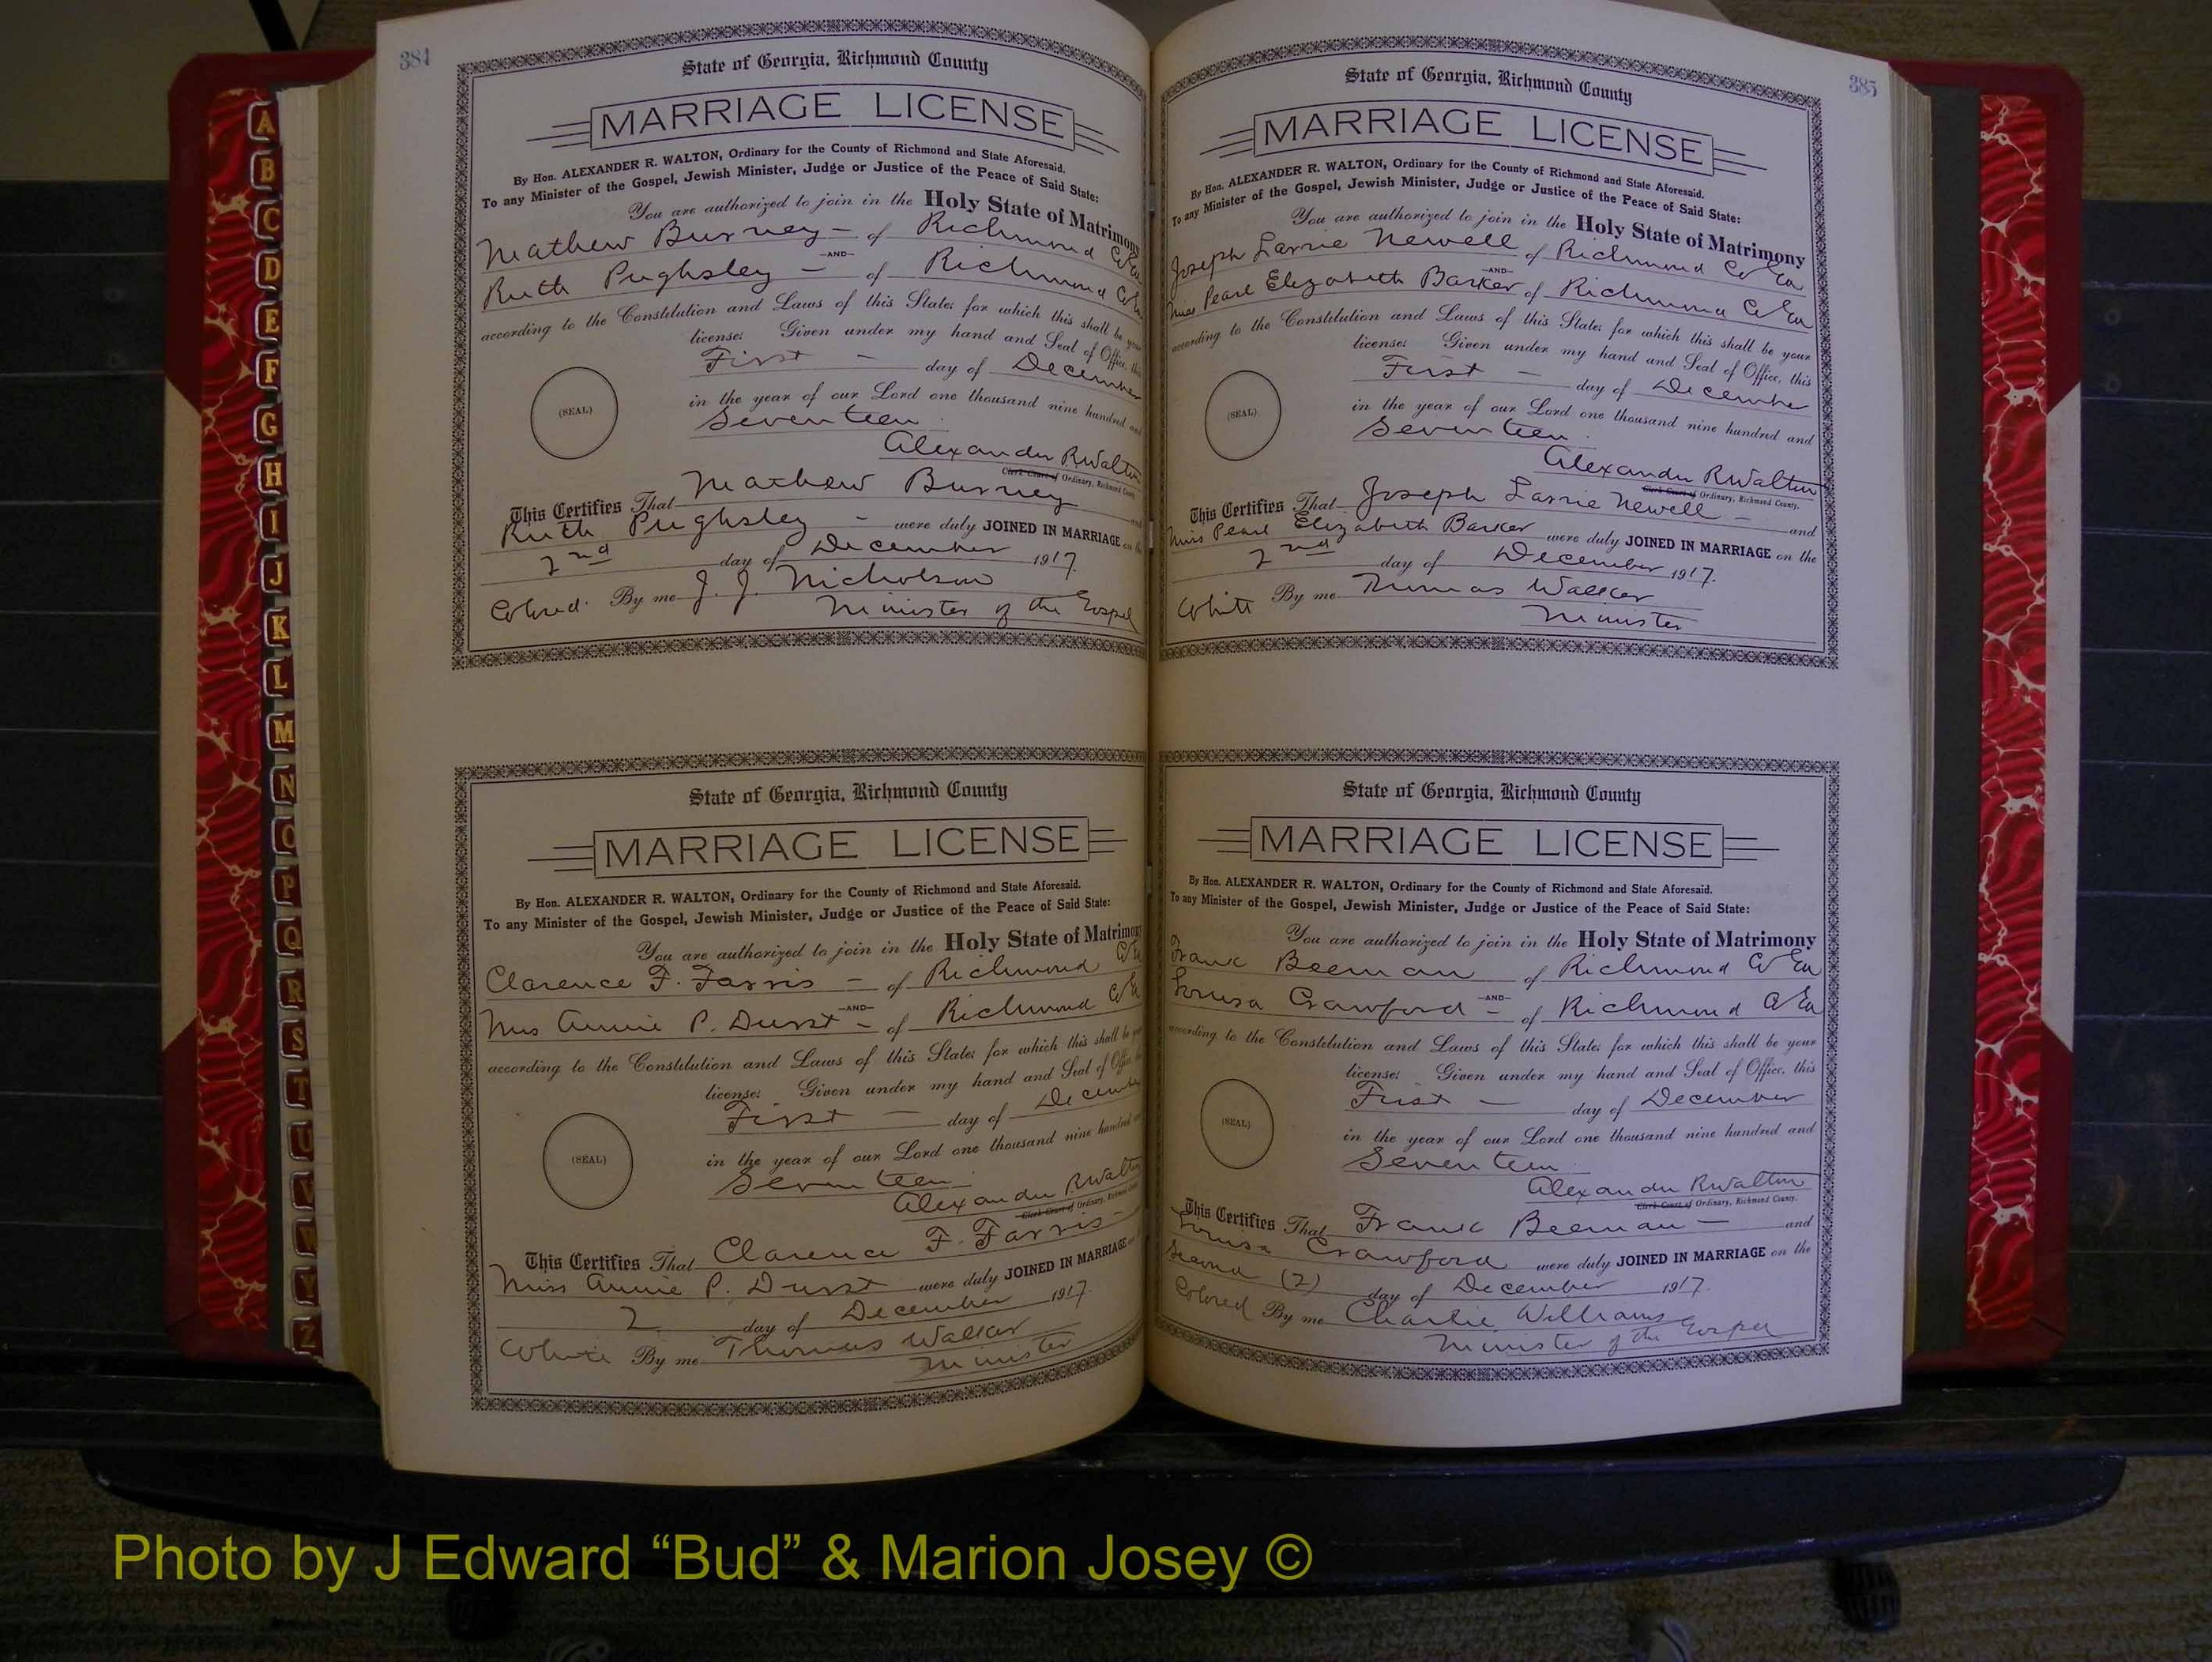 384
State of Georgia, Richmond County
MARRIAGE LICENSE
By Hon. ALEXANDER R. WALTON, Ordinary for the County of Richmond and State Aforesaid.
To any Minister of the Gospel, Jewish Minister, Judge or Justice of the Peace of Said State:
You are authorized to join in the Holy State of Matrimony
Mathew Burney - of Richmond Co Ga
-AND-
Ruth Pughsley - of Richmond Co
according to the Constitution and Laws of this State; for which this shall be your
license: Given under my hand and Seal of Office, this
First - day of December
(SEAL)
in the year of our Lord one thousand nine hundred and
Seventeen
Alexander R Walton
Clerk Court of Ordinary, Richmond County
This Certifies That Mathew Burney
Ruth Pughsley - were duly JOINED IN MARRIAGE on the
2nd day of December 1917.
Colored. By me J. J. Nicholson
Minister of the Gospel
State of Georgia, Richmond County
MARRIAGE LICENSE
By Hon. ALEXANDER R. WALTON, Ordinary for the County of Richmond and State Aforesaid.
To any Minister of the Gospel, Jewish Minister, Judge or Justice of the Peace of Said State:
You are authorized to join in the Holy State of Matrimony
Clarence F. Farris - of Richmond Co Ga
-AND-
Miss Annie P. Durst - of Richmond Co Ga
according to the Constitution and Laws of this State; for which this shall be your
license: Given under my hand and Seal of Office, this
First - day of December
(SEAL)
in the year of our Lord one thousand nine hundred and
Seventeen
Alexander R Walton
Clerk Court of Ordinary, Richmond County
This Certifies That Clarence F. Farris -
Miss Annie P. Durst were duly JOINED IN MARRIAGE on
2 day of December 1917.
White By me Thomas Walker
Minister
385
State of Georgia, Richmond County
MARRIAGE LICENSE
By Hon. ALEXANDER R. WALTON, Ordinary for the County of Richmond and State Aforesaid.
To any Minister of the Gospel, Jewish Minister, Judge or Justice of the Peace of Said State:
You are authorized to join in the Holy State of Matrimony
Joseph Larrie Newell of Richmond Co Ga
-AND-
Miss Pearl Elizabeth Barker of Richmond Co Ga
according to the Constitution and Laws of this State; for which this shall be your
license: Given under my hand and Seal of Office, this
First - day of December
(SEAL)
in the year of our Lord one thousand nine hundred and
Seventeen
Alexander R Walton
Clerk Court of Ordinary, Richmond County.
This Certifies That Joseph Larrie Newell - and
Miss Pearl Elizabeth Barker were duly JOINED IN MARRIAGE on the
2nd day of December 1917.
White By me Thomas Walker
Minister
State of Georgia, Richmond County
MARRIAGE LICENSE
By Hon. ALEXANDER R. WALTON, Ordinary for the County of Richmond and State Aforesaid.
To any Minister of the Gospel, Jewish Minister, Judge or Justice of the Peace of Said State:
You are authorized to join in the Holy State of Matrimony
Frank Beeman of Richmond Co Ga
-AND-
Louisa Crawford - of Richmond Co Ga
according to the Constitution and Laws of this State; for which this shall be your
license: Given under my hand and Seal of Office, this
First - day of December
(SEAL)
in the year of our Lord one thousand nine hundred and
Seventeen
Alexander R Walton
Clerk Court of Ordinary, Richmond County.
This Certifies That Frank Beeman - and
Louisa Crawford were duly JOINED IN MARRIAGE on the
Second (2) day of December 1917.
Colored By me Charlie Williams
Minister of the Gospel
A
B
C
D
E
F
G
H
I
J
K
L
M
N
O
P
Q
R
S
T
U
V
W
Y
Z
Photo by J Edward “Bud” & Marion Josey ©